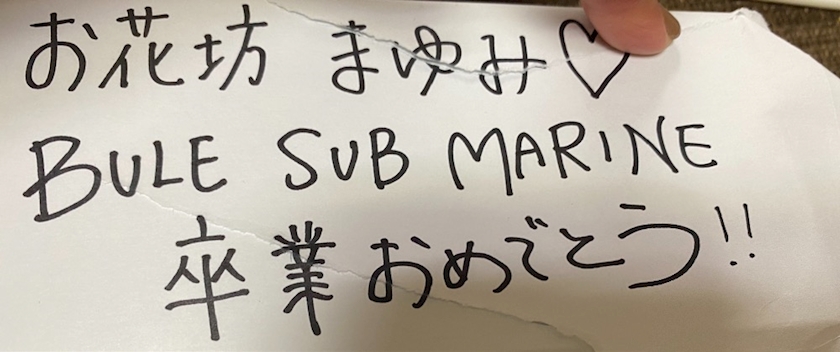 お花坊 まゆみ♡
BULE SUB MARINE
卒業おめでとう!!